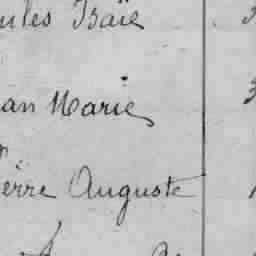 ules Isaïe
an Marie
ierre Auguste